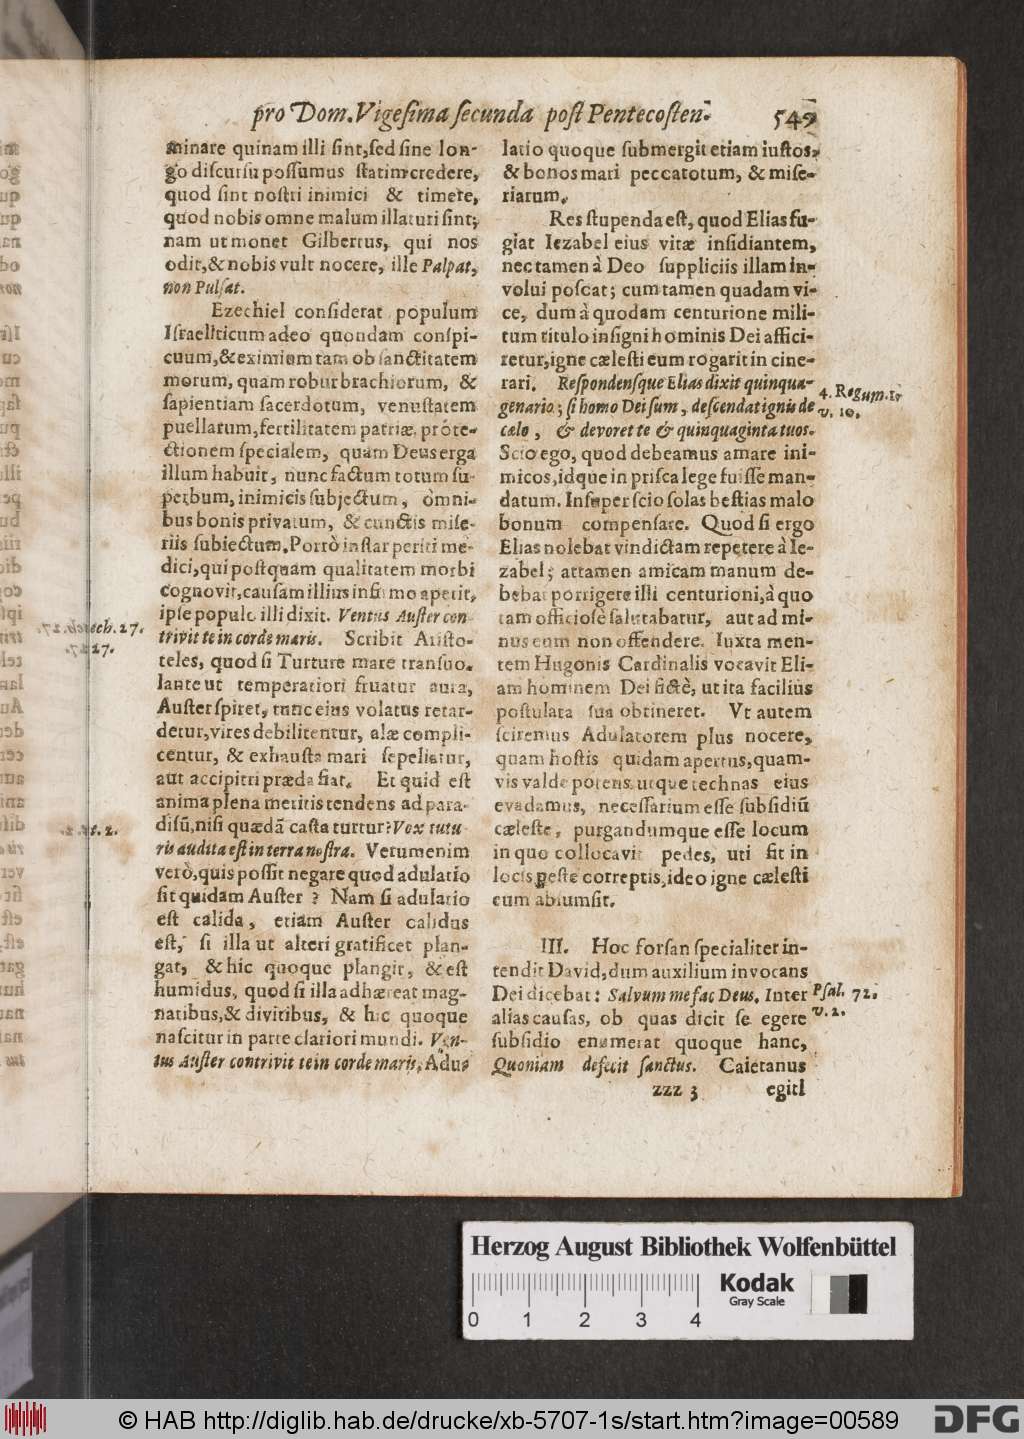 pro Dom. Vigesima secunda post Pentecosten. 549
minare quinam illi sint, sed sine lon-
go discursu possumus statim credere,
quod sint nostri inimici & timere,
quod nobis omne malum illaturi sint;
nam ut monet Gilbertus, qui nos
odit, & nobis vult nocere, ille Palpat,
non Pulsat.
Ezechiel considerat populum
Israeliticum adeo quondam conspi-
cuum, & eximium tam ob sanctitatem
morum, quam robur brachiorum, &
sapientiam sacerdotum, venustatem
puellarum, fertilitatem patriæ, prote-
ctionem specialem, quam Deus erga
illum habuit, nunc factum totum su-
perbum, inimicis subjectum, omni-
bus bonis privatum, & cunctis mise-
riis subiectum. Porrò instar periti me-
dici, qui postquam qualitatem morbi
cognovit, causam illius infirmo aperit,
ipse populo illi dixit. Ventus Auster con-
trivit te in corde maris. Scribit Aristo-
teles, quod si Turture mare transvo-
lante ut temperatiori fruatur aura,
Auster spiret, tunc eius volatus retar-
detur, vires debilitentur, alæ compli-
centur, & exhausta mari sepeliatur,
aut accipitri præda fiat. Et quid est
anima plena meritis tendens ad para-
disũ, nisi quædã casta turtur? Vox tutu-
ris audita est in terra nostra. Verumenim
verò, quis possit negare quod adulatio
sit quidam Auster? Nam si adulatio
est calida, etiam Auster calidus
est, si illa ut alteri gratificet plan-
gat, & hic quoque plangit, & est
humidus, quod si illa adhæreat mag-
natibus, & divitibus, & hic quoque
nascitur in parte clariori mundi. Ven-
tus Auster contrivit te in corde maris, Adu-
ech. 27.
27.
2.
latio quoque submergit etiam iustos,
& bonos mari peccatotum, & mise-
riarum.
Res stupenda est, quod Elias fu-
giat Iezabel eius vitæ insidiantem,
nec tamen à Deo suppliciis illam in-
volui poscat; cum tamen quadam vi-
ce, dum à quodam centurione mili-
tum titulo insigni hominis Dei affici-
retur, igne cælesti eum rogarit in cine-
rari. Respondensque Elias dixit quinqua-
genario; si homo Dei sum, descendat ignis de
cælo, & devoret te & quinquaginta tuos.
Scio ego, quod debeamus amare ini-
micos, idque in prisca lege fuisse man-
datum. Insuper scio solas bestias malo
bonum compensare. Quod si ergo
Elias nolebat vindictam repetere à Ie-
zabel; attamen amicam manum de-
bebat porrigere illi centurioni, à quo
tam officiosè salutabatur, aut ad mi-
nus eum non offendere. Iuxta men-
tem Hugonis Cardinalis vocavit Eli-
am hominem Dei fictè, ut ita facilius
postulata sua obtineret. Vt autem
sciremus Adulatorem plus nocere,
quam hostis quidam apertus, quam-
vis valde potens, utque technas eius
evadamus, necessarium esse subsidiũ
cæleste, purgandumque esse locum
in quo collocavit pedes, uti fit in
locis peste correptis, ideo igne cælesti
eum absumsit.
III. Hoc forsan specialiter in-
tendit David, dum auxilium invocans
Dei dicebat: Salvum me fac Deus. Inter
alias causas, ob quas dicit se egere
subsidio enumerat quoque hanc,
Quoniam defecit sanctus. Caietanus
zzz 3 egitl
4. Regum. 1.
v. 10.
Psal. 72.
v. 2.
Herzog August Bibliothek Wolfenbüttel
Kodak
Gray Scale
0 1 2 3 4
© HAB http://diglib.hab.de/drucke/xb-5707-1s/start.htm?image=00589
DFG